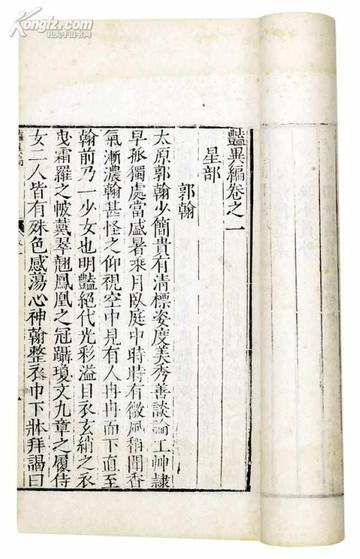 Kongfz.com
孔夫子旧书网
豔異編卷之一
星部
郭翰
太原郭翰少簡貴有清標姿度美秀善談論工艸隸
早孤獨處當盛暑乗月臥庭中時時有微風稍聞香
氣漸濃翰甚怪之仰視空中見有人冉冉而下直至
翰前乃一少女也明豔絕代光彩溢目衣玄綃之衣
曳霜羅之帔戴翠翹鳳凰之冠躡瓊文九章之履侍
女二人皆有殊色感蕩心神翰整衣巾下牀拜謁曰